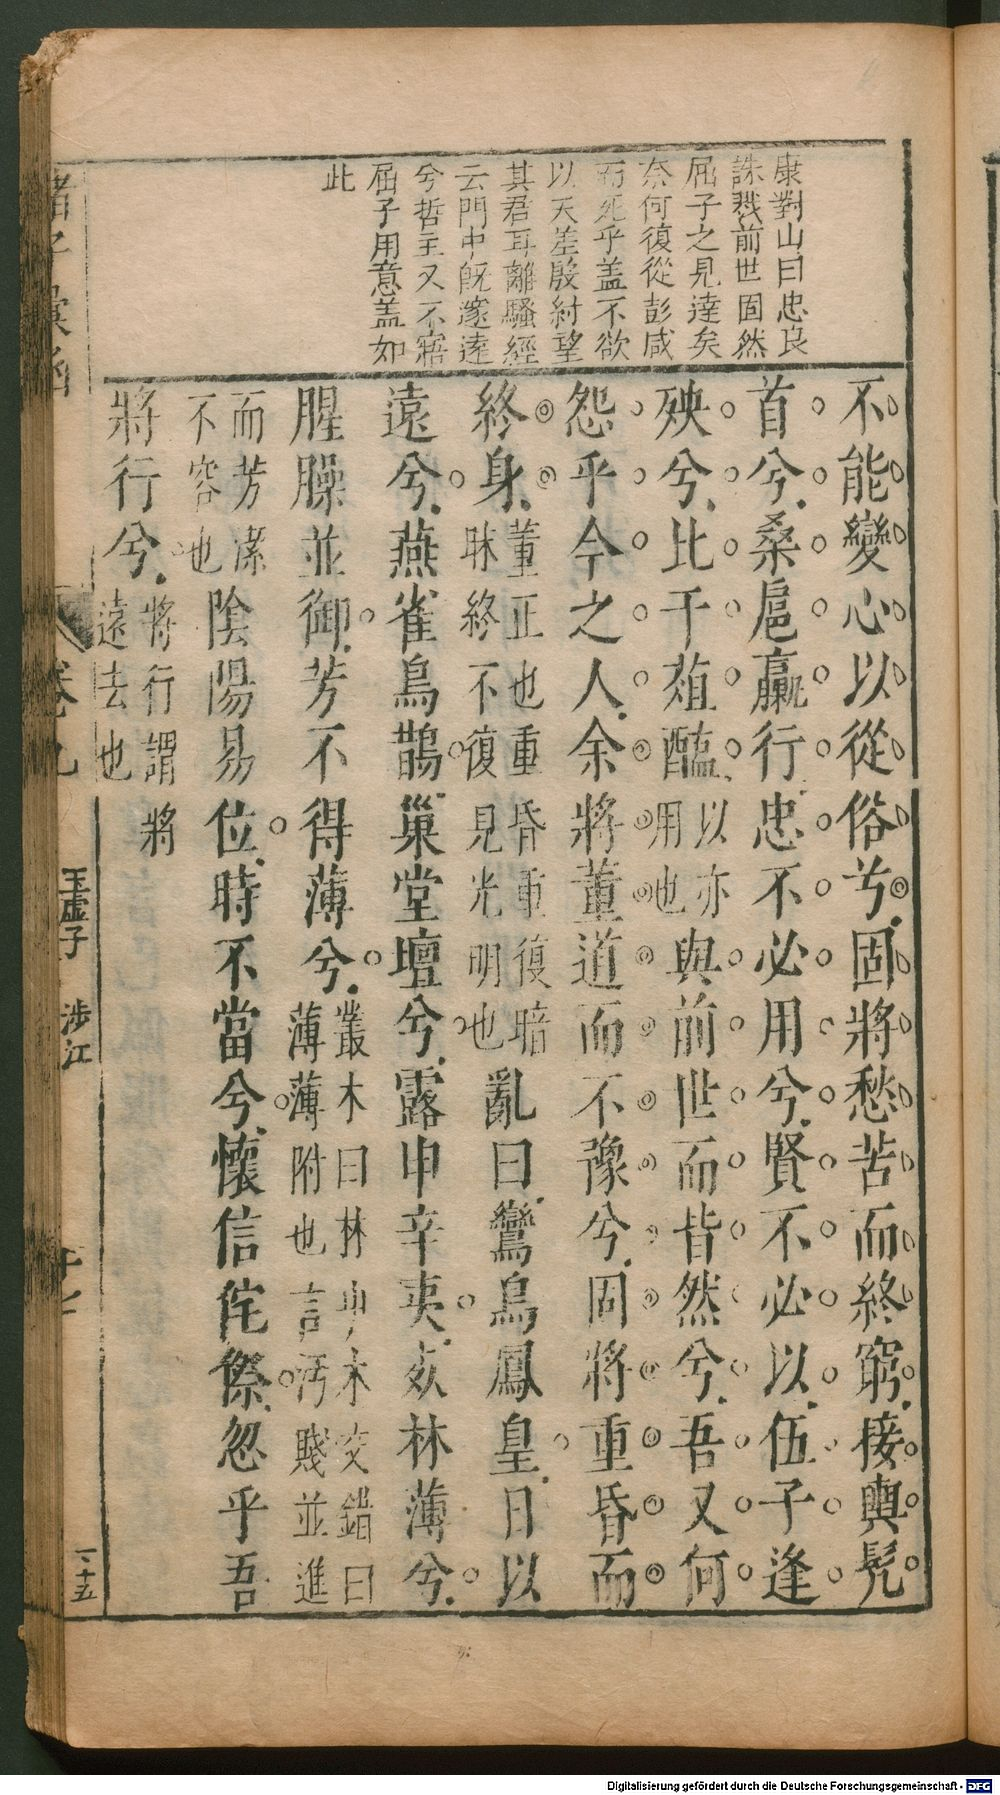 康對山曰忠良
誅戮前世固然
屈子之見達矣
奈何復從彭咸
而死乎盖不欲
以天差殷紂望
其君耳離騷經
云閨中旣邃遠
兮哲主又不寤
屈子用意盖如
此
不能變心以從俗兮固將愁苦而終窮接輿髠
首兮桑扈臝行忠不必用兮賢不必以伍子逢
殃兮比干葅醢以亦用也與前世而皆然兮吾又何
怨乎今之人余將董道而不豫兮固將重昏而
終身董正也重昏重復暗昧終不復見光明也亂曰鸞鳥鳳皇日以
遠兮燕雀烏鵲巢堂壇兮露申辛夷死林薄兮
腥臊並御芳不得薄兮叢木曰林草木交錯曰薄薄附也言汚賤並進
而芳潔不容也陰陽易位時不當兮懷信侘傺忽乎吾
將行兮將行謂將遠去也
諸子彙函
卷九
玉虛子 涉江
十七
一十五
Digitalisierung gefördert durch die Deutsche Forschungsgemeinschaft - DFG